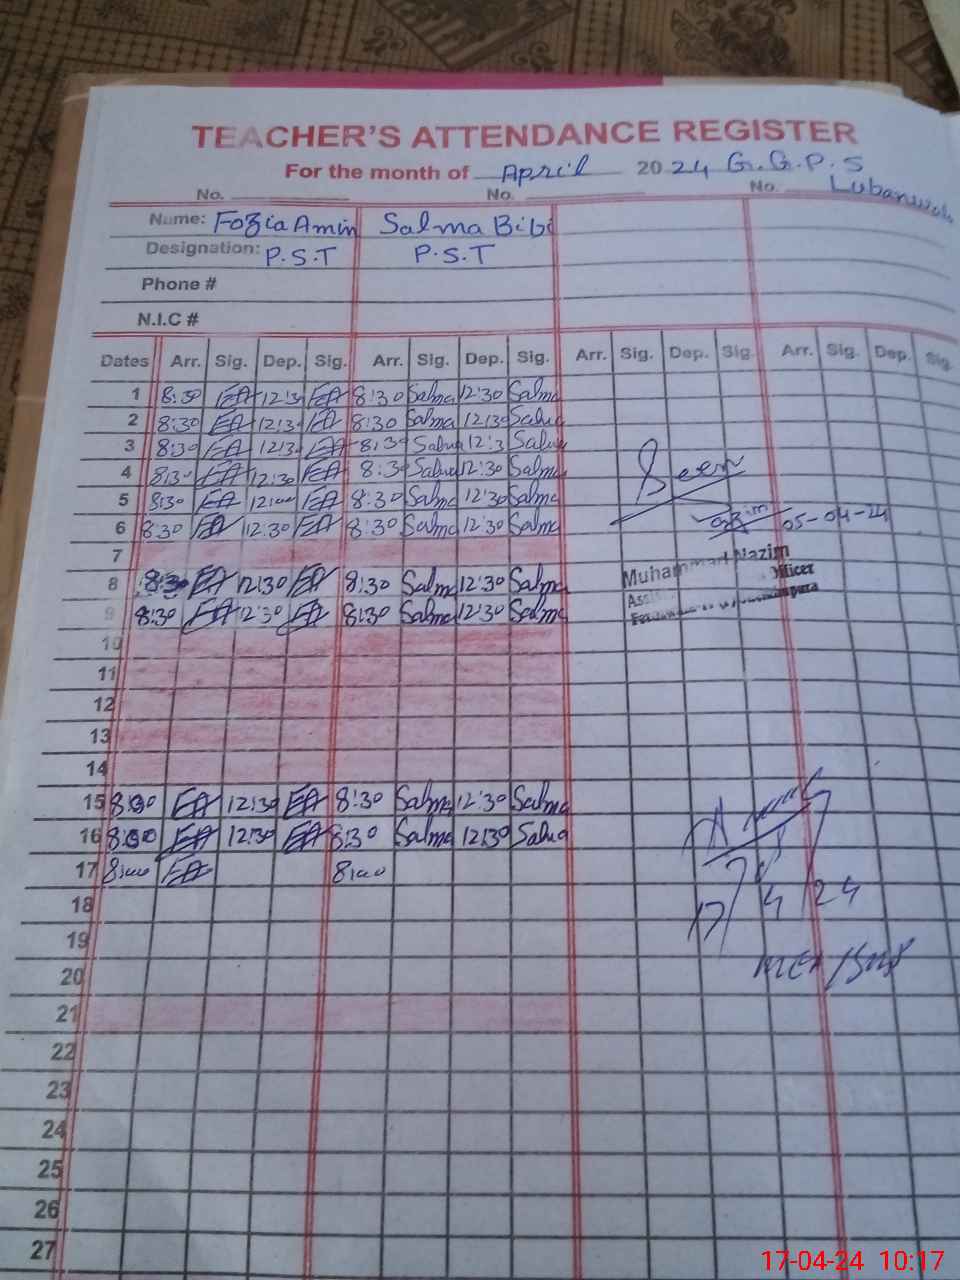 TEACHER'S ATTENDANCE REGISTER
For the month of April 2024 G.G.P.S
No. No. No. Lubanwala
Name: Fozia Amin Salma Bibi
Designation: P.S.T P.S.T
Phone #
N.I.C #
Dates Arr. Sig. Dep. Sig. Arr. Sig. Dep. Sig. Arr. Sig. Dep. Sig. Arr. Sig. Dep. Sig.
1 8:30 FA 12:30 FA 8:30 Salma 12:30 Salma
2 8:30 FA 12:30 FA 8:30 Salma 12:30 Salma
3 8:30 FA 12:30 FA 8:30 Salma 12:3 Salma
4 8:30 FA 12:30 FA 8:30 Salma 12:30 Salma
Seen
5 8:30 FA 12:00 FA 8:30 Salma 12:30 Salma
6 8:30 FA 12:30 FA 8:30 Salma 12:30 Salma
05-04-24
7
Muhammad Nazim
8 8:30 FA 12:30 FA 8:30 Salma 12:30 Salma
Officer
9 8:30 FA 12:30 FA 8:30 Salma 12:30 Salma
10
11
12
13
14
15 8:30 FA 12:30 FA 8:30 Salma 12:30 Salma
16 8:00 FA 12:30 FA 8:30 Salma 12:30 Salma
17 8:00 FA 8:00
18
17/4/24
19
20
MEA/
21
22
23
24
25
26
27
17-04-24 10:17